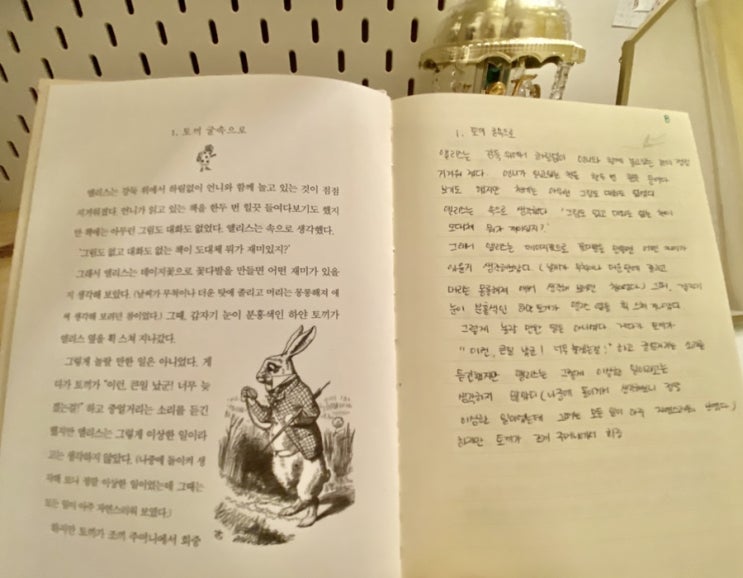 1. 토끼 굴속으로
앨리스는 강둑 위에서 하릴없이 언니와 함께 놀고 있는 것이 점점
지겨워졌다. 언니가 읽고 있는 책을 한두 번 힐끗 들여다보기도 했지
만 책에는 아무런 그림도 대화도 없었다. 앨리스는 속으로 생각했다.
'그림도 없고 대화도 없는 책이 도대체 뭐가 재미있지?'
그래서 앨리스는 데이지꽃으로 꽃다발을 만들면 어떤 재미가 있을
지 생각해 보았다. (날씨가 무척이나 더운 탓에 졸리고 머리는 몽롱해져 애
써 생각해 보려던 참이었다.) 그때, 갑자기 눈이 분홍색인 하얀 토끼가
앨리스 옆을 휙 스쳐 지나갔다.
그렇게 놀랄 만한 일은 아니었다. 게
다가 토끼가 "이런, 큰일 났군! 너무 늦
겠는걸!" 하고 중얼거리는 소리를 듣긴
했지만 앨리스는 그렇게 이상한 일이라
고는 생각하지 않았다. (나중에 돌이켜 생
각해 보니 정말 이상한 일이었는데 그때는
모든 일이 아주 자연스러워 보였다.)
하지만 토끼가 조끼 주머니에서 회중
8
1. 토끼 굴속으로
앨리스는 강둑 위에서 하릴없이 언니와 함께 놀고있는 것이 점점
지겨워 졌다. 언니가 읽고있는 책을 한두 번 힐끗 들여다
보기도 했지만 책에는 아무런 그림도 대화도 없었다.
앨리스는 속으로 생각했다. '그림도 없고 대화도 없는 책이
도대체 뭐가 재미있지?'
그래서 앨리스는 데이지꽃으로 꽃다발을 만들면 어떤 재미가
있을지 생각해보았다. (날씨가 무척이나 더운 탓에 졸리고
머리는 몽롱해져 애써 생각해 보려던 참이었다.) 그때, 갑자기
눈이 분홍색인 하얀 토끼가 앨리스 옆을 휙 스쳐 지나갔다.
그렇게 놀랄 만한 일은 아니었다. 게다가 토끼가
"이런, 큰일 났군! 너무 늦겠는걸!" 하고 중얼거리는 소리를
듣긴했지만 앨리스는 그렇게 이상한 일이라고는
생각하지 않았다. (나중에 돌이켜 생각해보니 정말
이상한 일이었는데 그때는 모든 일이 아주 자연스러워 보였다.)
하지만 토끼가 조끼 주머니에서 회중